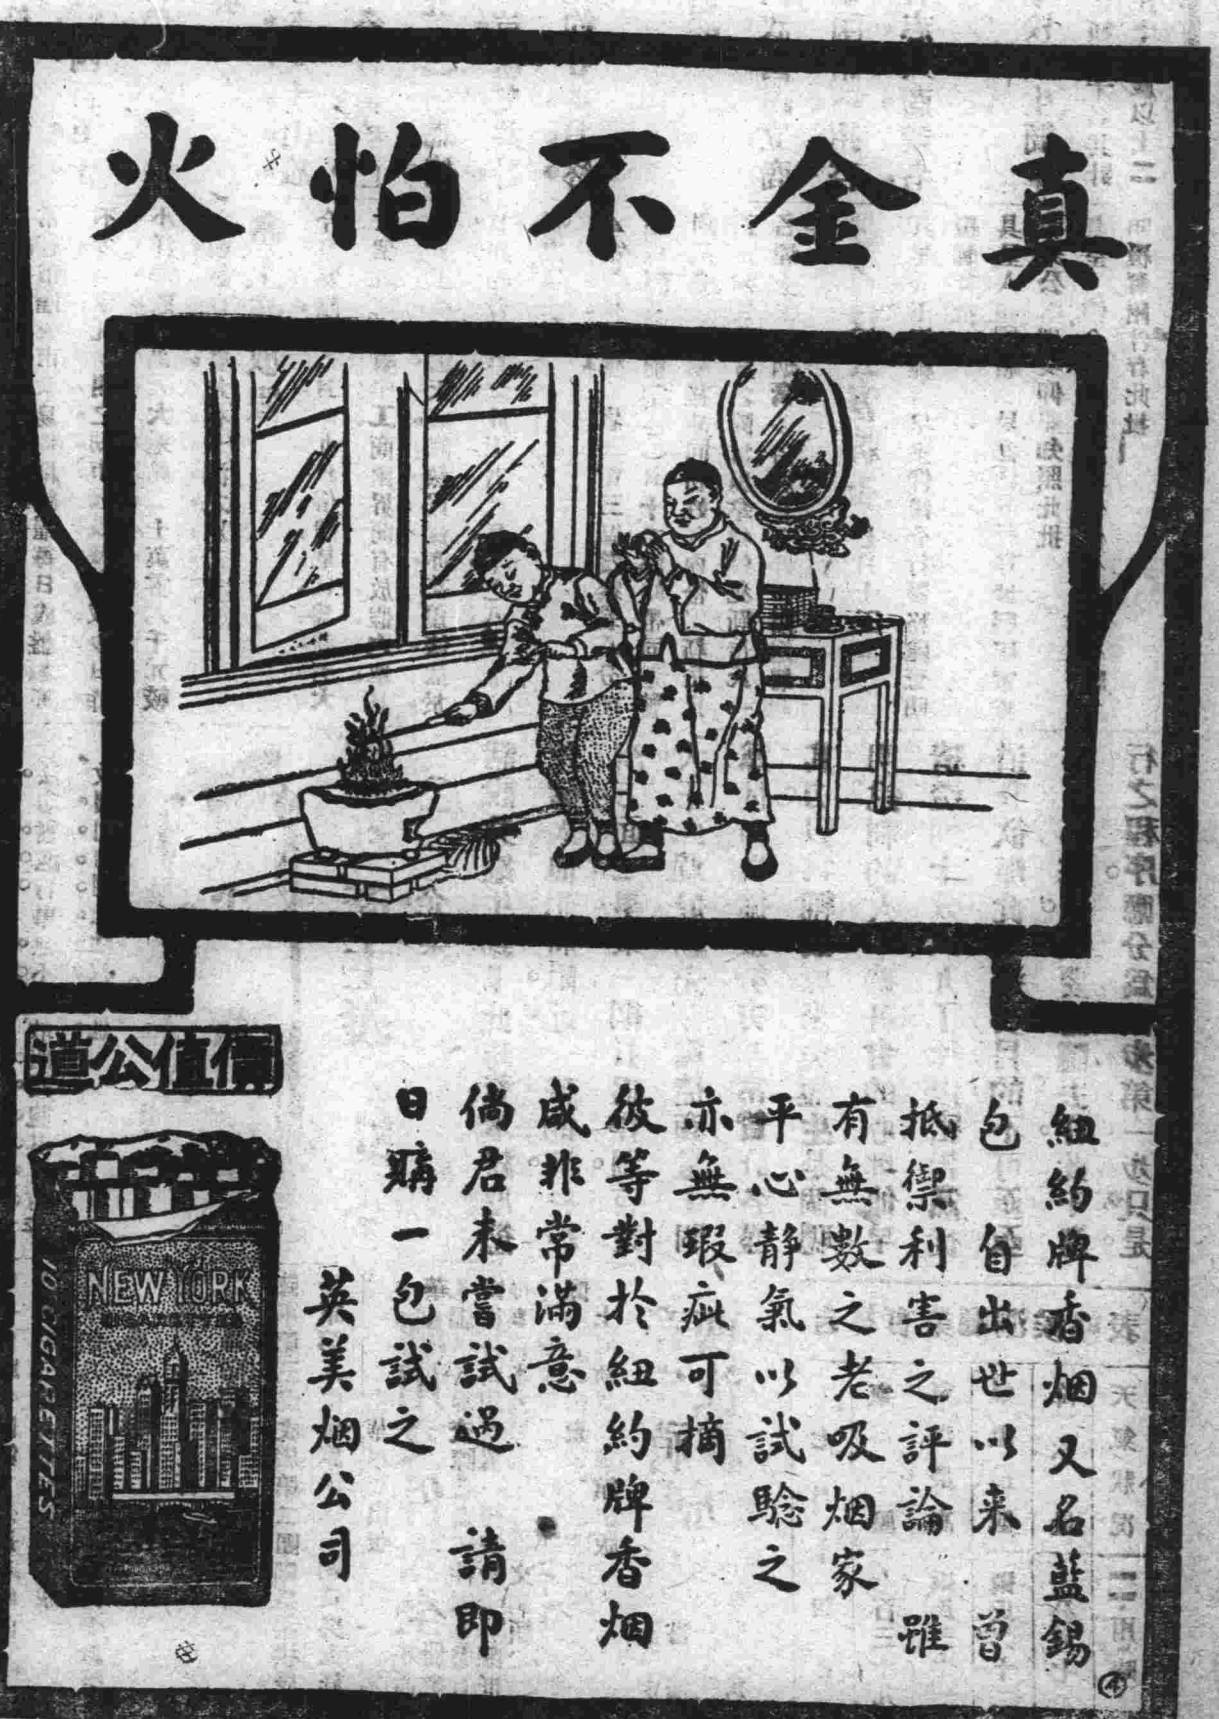 真金不怕火
紐約牌香烟又名藍錫
包 自出世以来 曾
抵禦利害之評論 雖
有無數之老吸烟家
平心靜氣以試驗之
亦無瑕疵可摘
彼等對於紐約牌香烟
咸非常滿意
倘君未嘗試過 請即
日購一包試之
英美烟公司
價值公道
NEW YORK
CIGARETTES
10 CIGARETTES